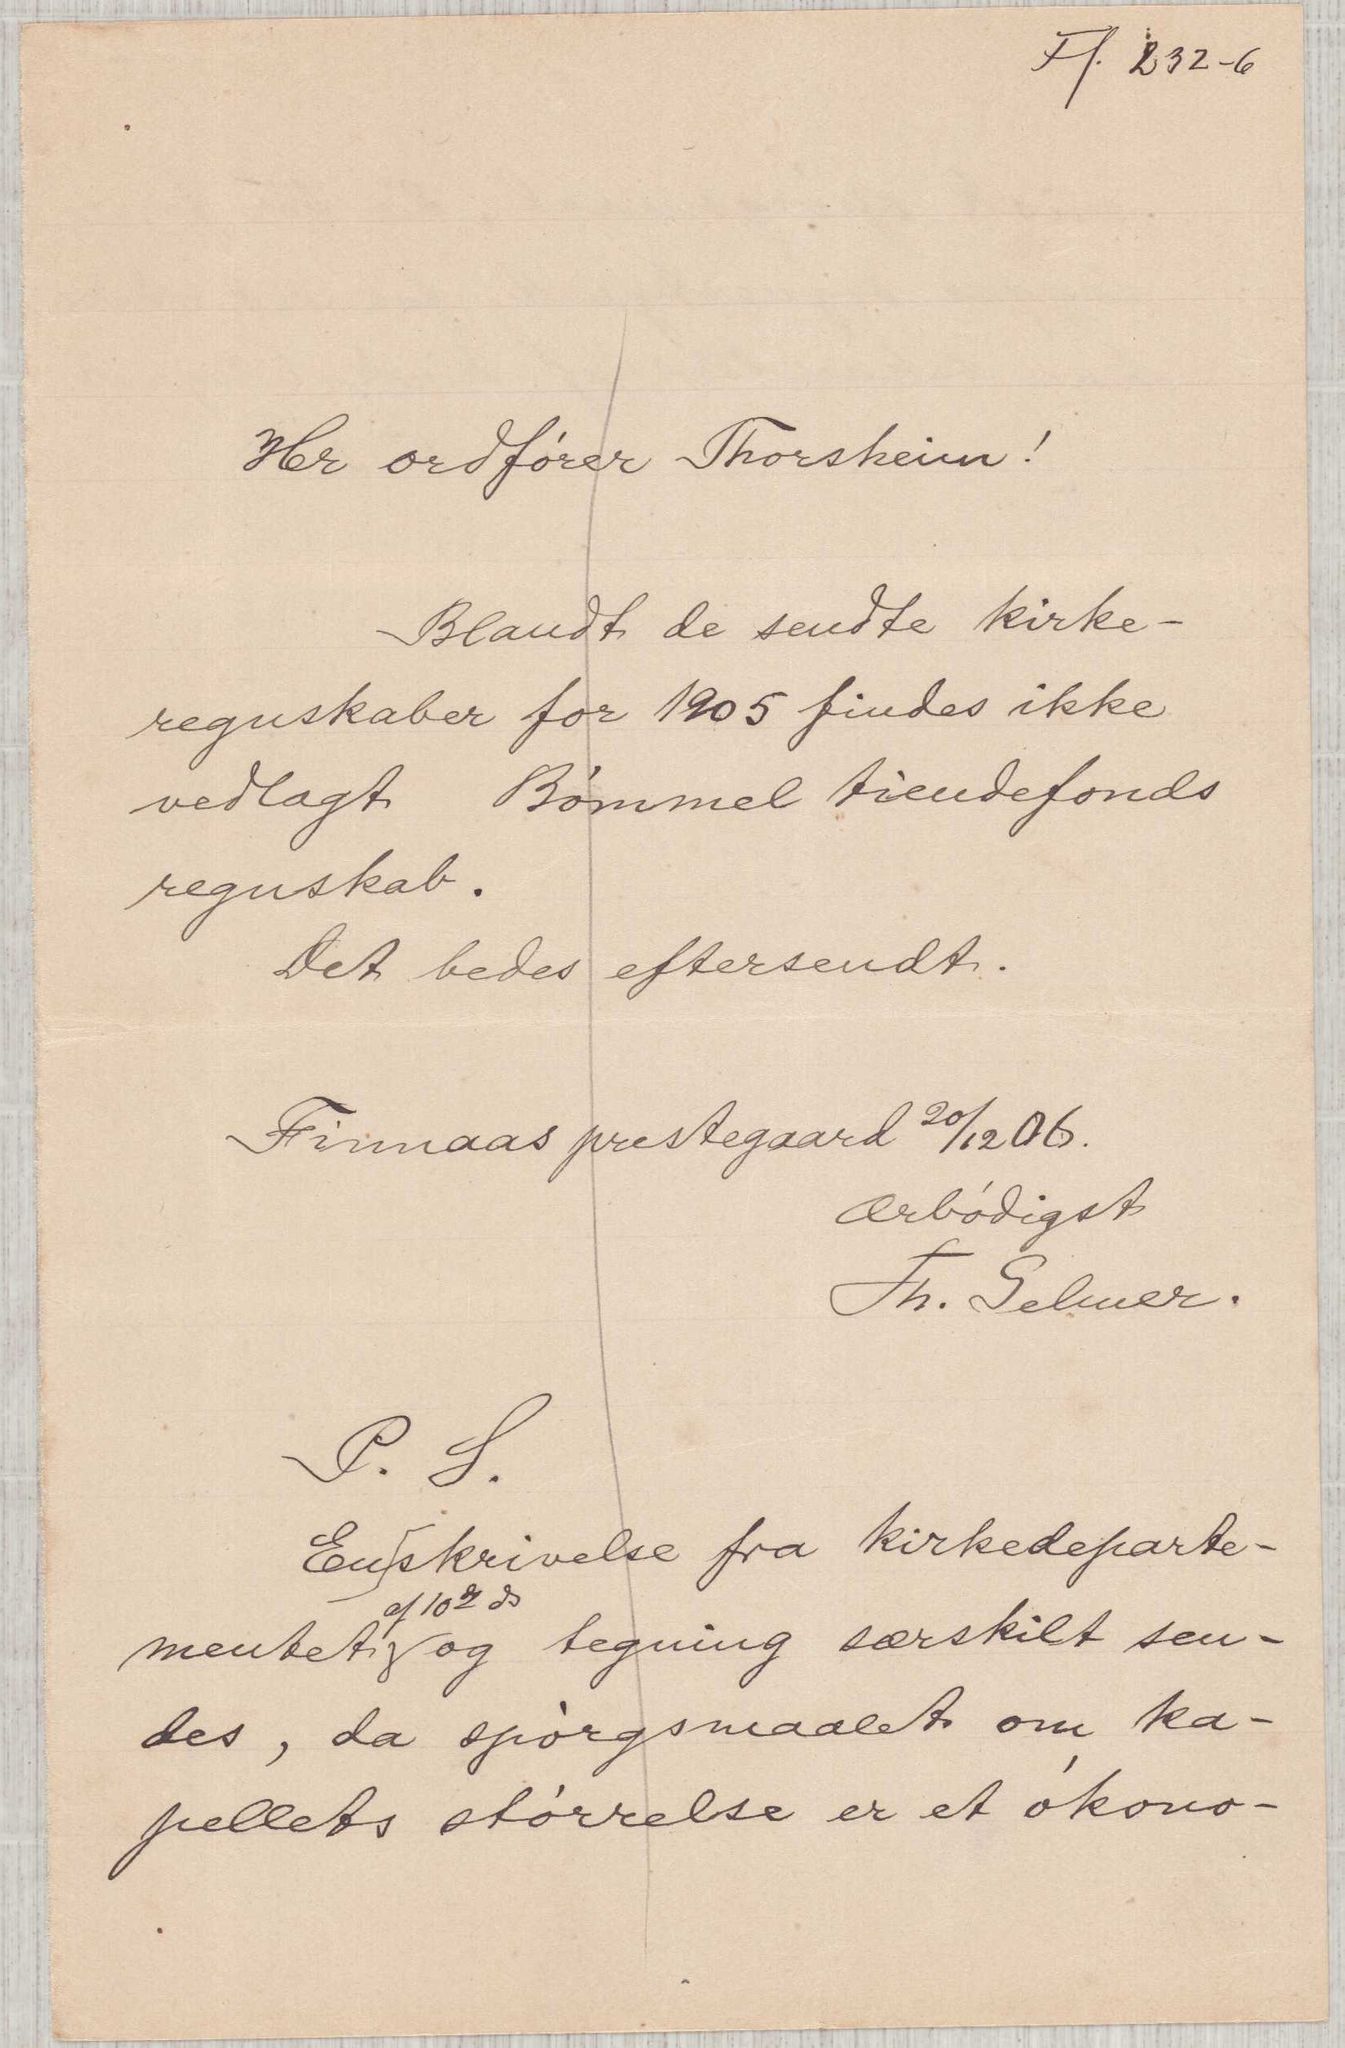 Ff. 232-6
Hr ordfórer Thorsheim!
Blandt de sendte kirke-
regnskaber for 1905 findes ikke
vedlagt Bómmel tiendefonds
regnskab.
Det bedes eftersendt.
Finnaas prestegaard 20/12 06.
ærbódigst
Th. Selmer.
P. S.
En skrivelse fra kirkedeparte-
af 10 ds
mentet og tegning særskilt sen-
des, da spórgsmaalet om ka-
pellets stórrelse er et ókono-